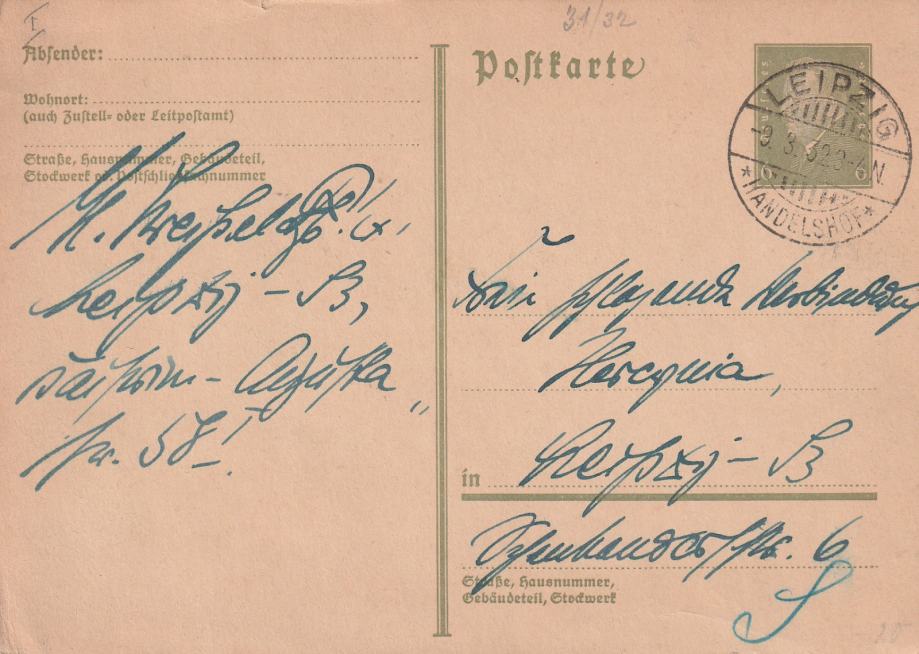 I
31/32
Absender:
Wohnort:
(auch Zustell- oder Leitpostamt)
Straße, Hausnummer, Gebäudeteil,
Stockwerk od. Postschließfachnummer
Leipzig - S3,
Kaiserin - Augusta
Str. 58 I.
Postkarte
LEIPZIG
9.3.32.3-4N.
*HANDELSHOF*
6 6
Verbindung
Hercynia,
in Leipzig - S3
6
Straße, Hausnummer,
Gebäudeteil, Stockwerk